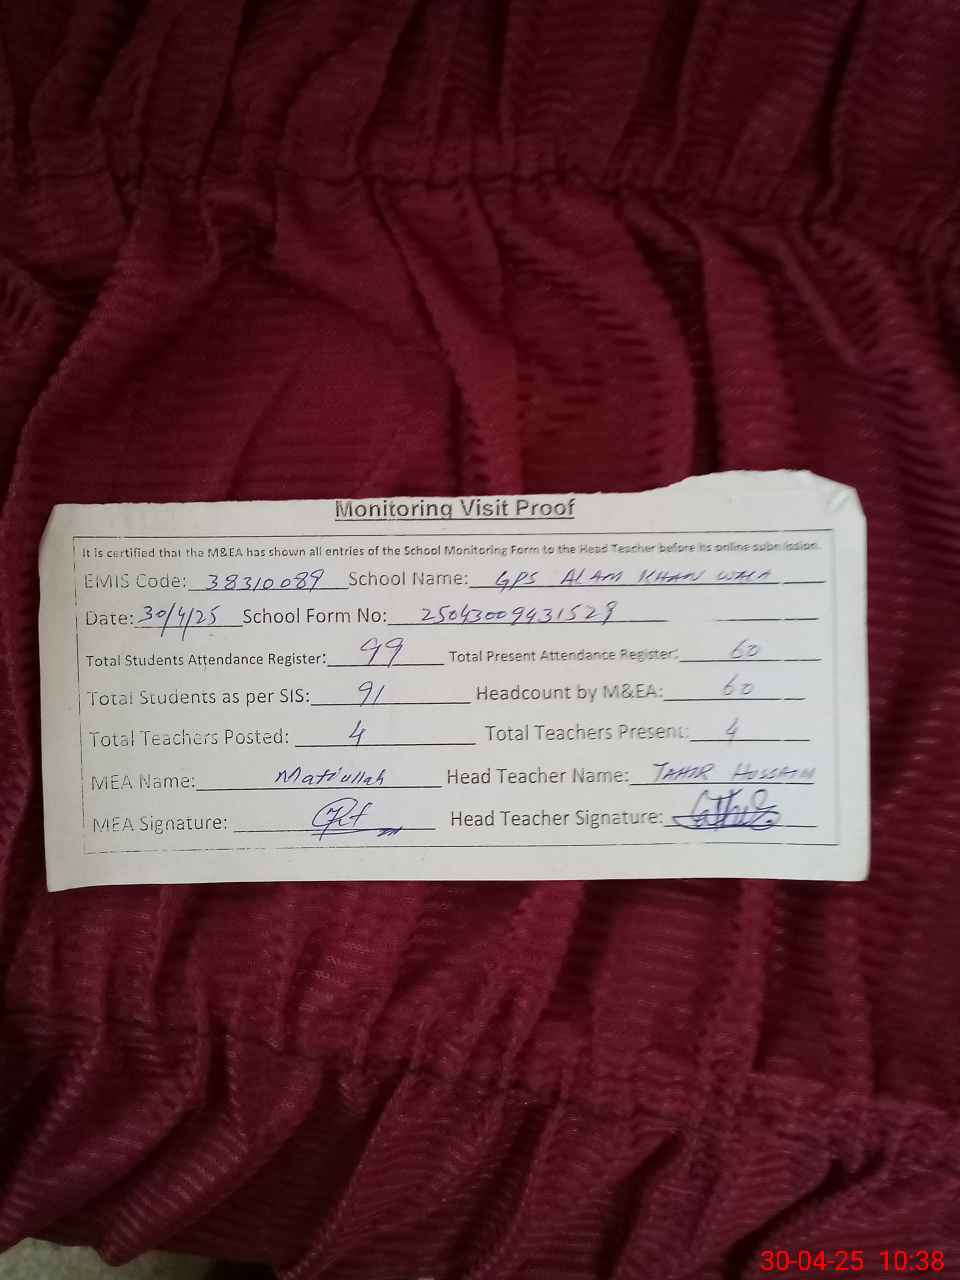 Monitoring Visit Proof
It is certified that the M&EA has shown all entries of the School Monitoring Form to the Head Teacher before its online submission.
EMIS Code: 38310089 School Name: GPS ALAM KHAN WALA
Date: 30/4/25 School Form No: 25043009431529
Total Students Attendance Register: 99 Total Present Attendance Register: 60
Total Students as per SIS: 91 Headcount by M&EA: 60
Total Teachers Posted: 4 Total Teachers Present: 4
MEA Name: Matiullah Head Teacher Name: TAHIR HUSSAIN
MEA Signature: Head Teacher Signature:
30-04-25 10:38